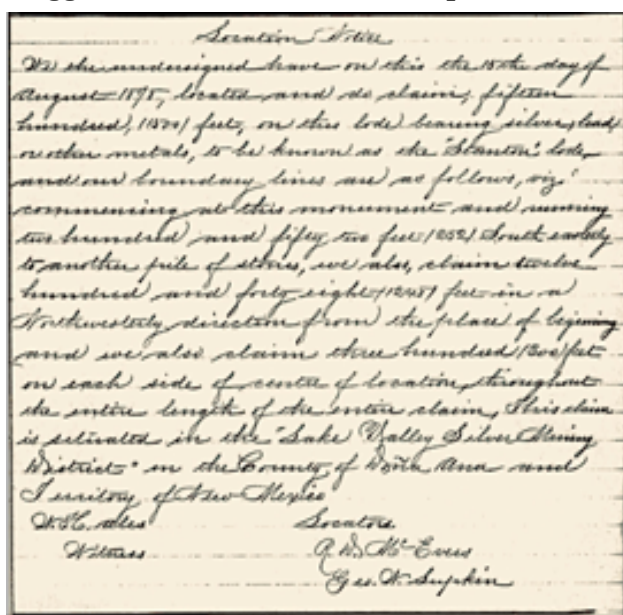 Location Notice
We the undersigned have on this the 15th day of
August 1878, located and do claim, fifteen
hundred, (1500) feet, on this lode bearing silver, lead,
or other metals, to be known as the "Stanton" lode,
and our boundary lines are as follows, viz:
commencing at this monument and running
two hundred and fifty two feet (252) South easterly
to another pile of stones, we also, claim twelve
hundred and forty eight (1248) feet in a
Northwesterly direction from the place of begining
and we also claim three hundred (300) feet
on each side of centre of location, throughout
the entire length of the entire claim, This claim
is setivated in the "Lake Valley Silver Mining
District" in the County of Doña Ana and
Territory of New Mexico
Locators
Witness A. D. McEvers
Geo. W. Lupkin